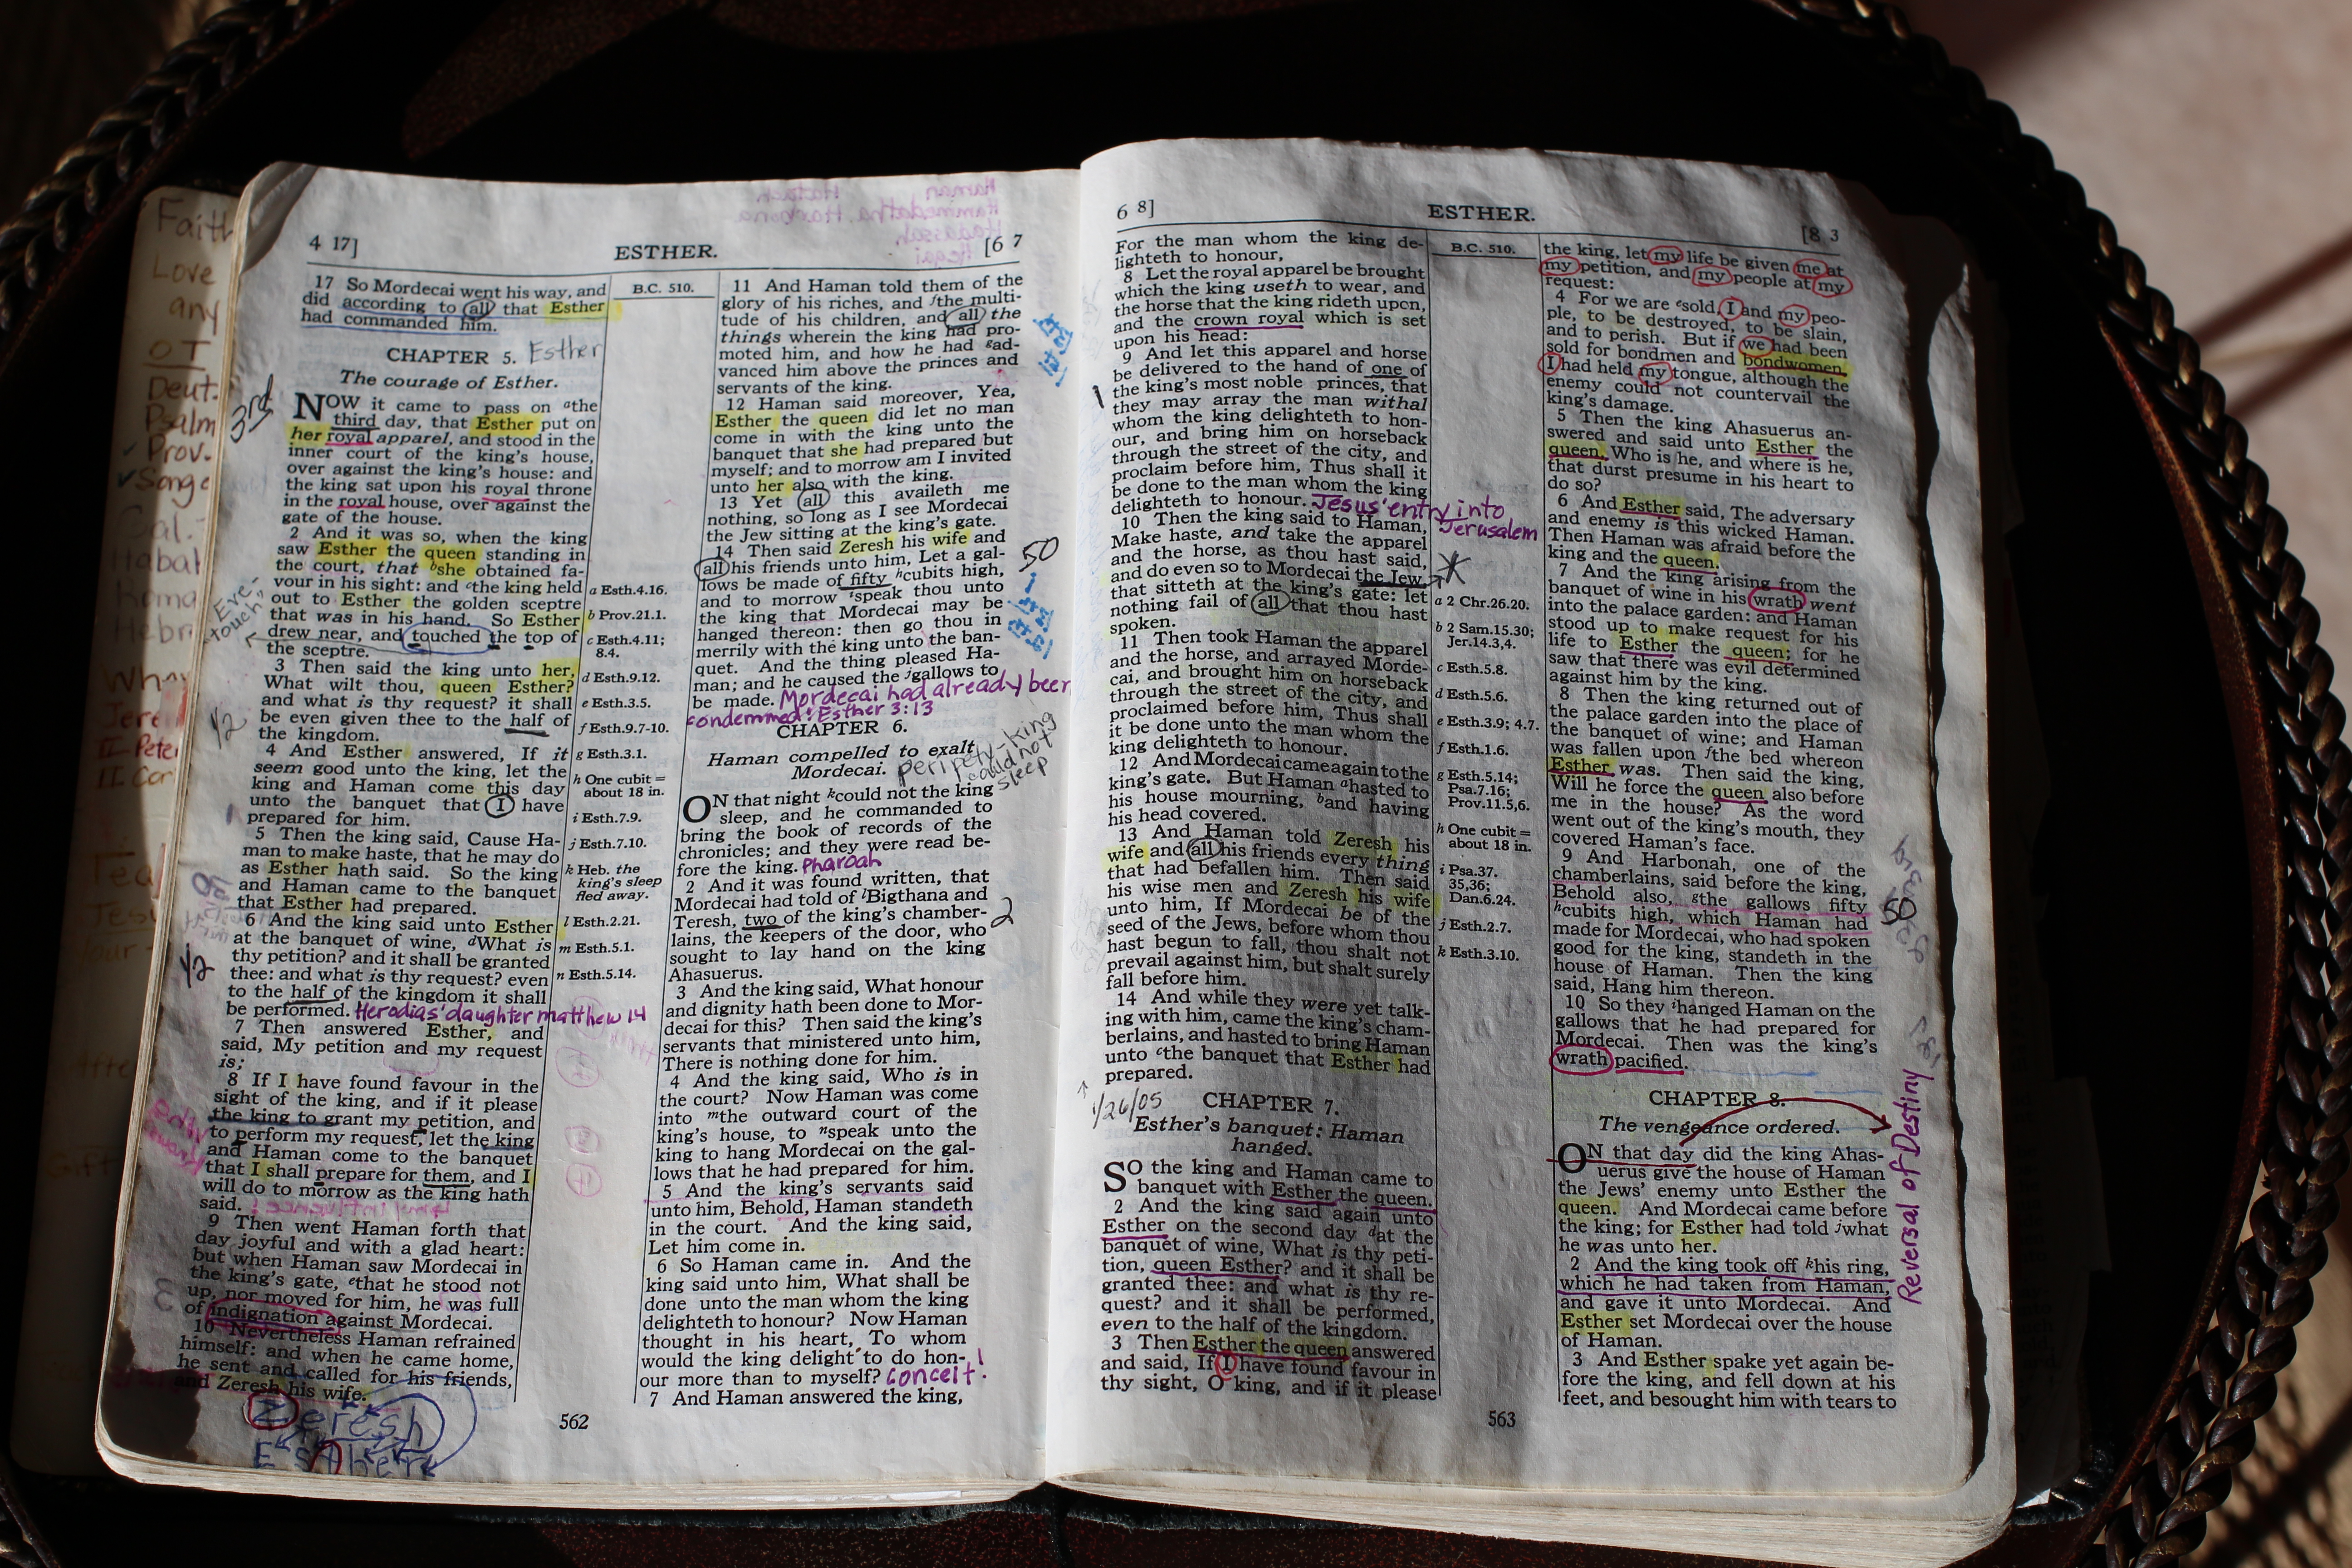 Faith
Love
any
OT
Deut.
Psalm
Prov.
4 17]
ESTHER.
[6 7
17 So Mordecai went his way, and
did according to all that Esther
had commanded him.
CHAPTER 5. Esther
The courage of Esther.
3rd
NOW it came to pass on athe
third day, that Esther put on
her royal apparel, and stood in the
inner court of the king's house,
over against the king's house: and
the king sat upon his royal throne
in the royal house, over against the
gate of the house.
2 And it was so, when the king
saw Esther the queen standing in
the court, that bshe obtained fa-
vour in his sight: and cthe king held
out to Esther the golden sceptre
that was in his hand. So Esther
drew near, and touched the top of
the sceptre.
"Eve
touch"
3 Then said the king unto her,
What wilt thou, queen Esther?
and what is thy request? it shall
be even given thee to the half of
the kingdom.
1/2
4 And Esther answered, If it
seem good unto the king, let the
king and Haman come this day
unto the banquet that I have
prepared for him.
5 Then the king said, Cause Ha-
man to make haste, that he may do
as Esther hath said. So the king
and Haman came to the banquet
that Esther had prepared.
6 And the king said unto Esther
at the banquet of wine, dWhat is
thy petition? and it shall be granted
thee: and what is thy request? even
to the half of the kingdom it shall
be performed. Herodias' daughter matthew 14
1/2
7 Then answered Esther, and
said, My petition and my request
is;
8 If I have found favour in the
sight of the king, and if it please
the king to grant my petition, and
to perform my request, let the king
and Haman come to the banquet
that I shall prepare for them, and I
will do to morrow as the king hath
said.
9 Then went Haman forth that
day joyful and with a glad heart:
but when Haman saw Mordecai in
the king's gate, ethat he stood not
up, nor moved for him, he was full
of indignation against Mordecai.
10 Nevertheless Haman refrained
himself: and when he came home,
he sent and called for his friends,
and Zeresh his wife.
Zeresh
Esther
B.C. 510.
a Esth.4.16.
b Prov.21.1.
c Esth.4.11;
8.4.
d Esth.9.12.
e Esth.3.5.
f Esth.9.7-10.
g Esth.3.1.
h One cubit =
about 18 in.
i Esth.7.9.
j Esth.7.10.
k Heb. the
king's sleep
fled away.
l Esth.2.21.
m Esth.5.1.
n Esth.5.14.
11 And Haman told them of the
glory of his riches, and fthe multi-
tude of his children, and all the
things wherein the king had pro-
moted him, and how he had gad-
vanced him above the princes and
servants of the king.
12 Haman said moreover, Yea,
Esther the queen did let no man
come in with the king unto the
banquet that she had prepared but
myself; and to morrow am I invited
unto her also with the king.
13 Yet all this availeth me
nothing, so long as I see Mordecai
the Jew sitting at the king's gate.
14 Then said Zeresh his wife and
all his friends unto him, Let a gal-
lows be made of fifty hcubits high,
and to morrow ispeak thou unto
the king that Mordecai may be
hanged thereon: then go thou in
merrily with the king unto the ban-
quet. And the thing pleased Ha-
man; and he caused the jgallows to
be made. Mordecai had already been
condemmed! Esther 3:13
50
CHAPTER 6.
Haman compelled to exalt
Mordecai.
peripety-king
could not
sleep
ON that night kcould not the king
sleep, and he commanded to
bring the book of records of the
chronicles; and they were read be-
fore the king. Pharoah
2 And it was found written, that
Mordecai had told of lBigthana and
Teresh, two of the king's chamber-
lains, the keepers of the door, who
sought to lay hand on the king
Ahasuerus.
2
3 And the king said, What honour
and dignity hath been done to Mor-
decai for this? Then said the king's
servants that ministered unto him,
There is nothing done for him.
4 And the king said, Who is in
the court? Now Haman was come
into mthe outward court of the
king's house, to nspeak unto the
king to hang Mordecai on the gal-
lows that he had prepared for him.
5 And the king's servants said
unto him, Behold, Haman standeth
in the court. And the king said,
Let him come in.
6 So Haman came in. And the
king said unto him, What shall be
done unto the man whom the king
delighteth to honour? Now Haman
thought in his heart, To whom
would the king delight to do hon-
our more than to myself? conceit!
7 And Haman answered the king,
562
6 8]
ESTHER.
[8 3
For the man whom the king de-
lighteth to honour,
8 Let the royal apparel be brought
which the king useth to wear, and
the horse that the king rideth upon,
and the crown royal which is set
upon his head:
9 And let this apparel and horse
be delivered to the hand of one of
the king's most noble princes, that
they may array the man withal
whom the king delighteth to hon-
our, and bring him on horseback
through the street of the city, and
proclaim before him, Thus shall it
be done to the man whom the king
delighteth to honour. Jesus' entry into
Jerusalem
1
10 Then the king said to Haman,
Make haste, and take the apparel
and the horse, as thou hast said,
and do even so to Mordecai the Jew,
that sitteth at the king's gate: let
nothing fail of all that thou hast
spoken.
11 Then took Haman the apparel
and the horse, and arrayed Morde-
cai, and brought him on horseback
through the street of the city, and
proclaimed before him, Thus shall
it be done unto the man whom the
king delighteth to honour.
12 And Mordecai came again to the
king's gate. But Haman ahasted to
his house mourning, band having
his head covered.
13 And Haman told Zeresh his
wife and all his friends every thing
that had befallen him. Then said
his wise men and Zeresh his wife
unto him, If Mordecai be of the
seed of the Jews, before whom thou
hast begun to fall, thou shalt not
prevail against him, but shalt surely
fall before him.
14 And while they were yet talk-
ing with him, came the king's cham-
berlains, and hasted to bring Haman
unto cthe banquet that Esther had
prepared.
1/26/05
CHAPTER 7.
Esther's banquet: Haman
hanged.
SO the king and Haman came to
banquet with Esther the queen.
2 And the king said again unto
Esther on the second day dat the
banquet of wine, What is thy peti-
tion, queen Esther? and it shall be
granted thee: and what is thy re-
quest? and it shall be performed,
even to the half of the kingdom.
3 Then Esther the queen answered
and said, If I have found favour in
thy sight, O king, and if it please
B.C. 510.
a 2 Chr.26.20.
b 2 Sam.15.30;
Jer.14.3,4.
c Esth.5.8.
d Esth.5.6.
e Esth.3.9; 4.7.
f Esth.1.6.
g Esth.5.14;
Psa.7.16;
Prov.11.5,6.
h One cubit =
about 18 in.
i Psa.37.
35,36;
Dan.6.24.
j Esth.2.7.
k Esth.3.10.
the king, let my life be given me at
my petition, and my people at my
request:
4 For we are esold, I and my peo-
ple, to be destroyed, to be slain,
and to perish. But if we had been
sold for bondmen and bondwomen,
I had held my tongue, although the
enemy could not countervail the
king's damage.
5 Then the king Ahasuerus an-
swered and said unto Esther the
queen, Who is he, and where is he,
that durst presume in his heart to
do so?
6 And Esther said, The adversary
and enemy is this wicked Haman.
Then Haman was afraid before the
king and the queen.
7 And the king arising from the
banquet of wine in his wrath went
into the palace garden: and Haman
stood up to make request for his
life to Esther the queen; for he
saw that there was evil determined
against him by the king.
8 Then the king returned out of
the palace garden into the place of
the banquet of wine; and Haman
was fallen upon fthe bed whereon
Esther was. Then said the king,
Will he force the queen also before
me in the house? As the word
went out of the king's mouth, they
covered Haman's face.
9 And Harbonah, one of the
chamberlains, said before the king,
Behold also, gthe gallows fifty
hcubits high, which Haman had
made for Mordecai, who had spoken
good for the king, standeth in the
house of Haman. Then the king
said, Hang him thereon.
50
10 So they ihanged Haman on the
gallows that he had prepared for
Mordecai. Then was the king's
wrath pacified.
CHAPTER 8.
The vengeance ordered.
Reversal of Destiny
ON that day did the king Ahas-
uerus give the house of Haman
the Jews' enemy unto Esther the
queen. And Mordecai came before
the king; for Esther had told jwhat
he was unto her.
2 And the king took off khis ring,
which he had taken from Haman,
and gave it unto Mordecai. And
Esther set Mordecai over the house
of Haman.
3 And Esther spake yet again be-
fore the king, and fell down at his
feet, and besought him with tears to
563